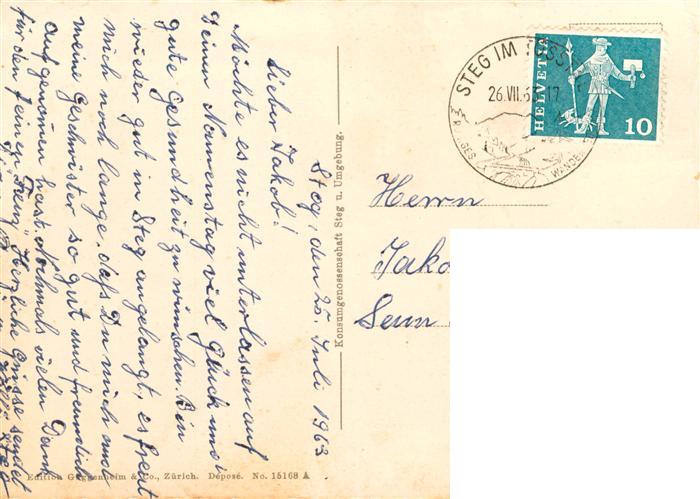 Steg, den 25. Juli 1963
Lieber Jakob!
Möchte es nicht unterlassen auf
Deinen Namenstag viel Glück und
gute Gesundheit zu wünschen. Bin
wieder gut in Steg angelangt, es freut
mich noch lange, dass Du mich und
meine Geschwister so gut und freundlich
aufgenomen hast. Nochmals vielen Dank
für den feinen "Herzliche Grüsse sendet
Konsumgenossenschaft Steg u. Umgebung.
Edition Guggenheim & Co., Zürich. Déposé. No. 15168 A
STEG IM TÖSST
26.VII.63-17
WANDE
HELVETIA
10
Herrn
Jako
Senn